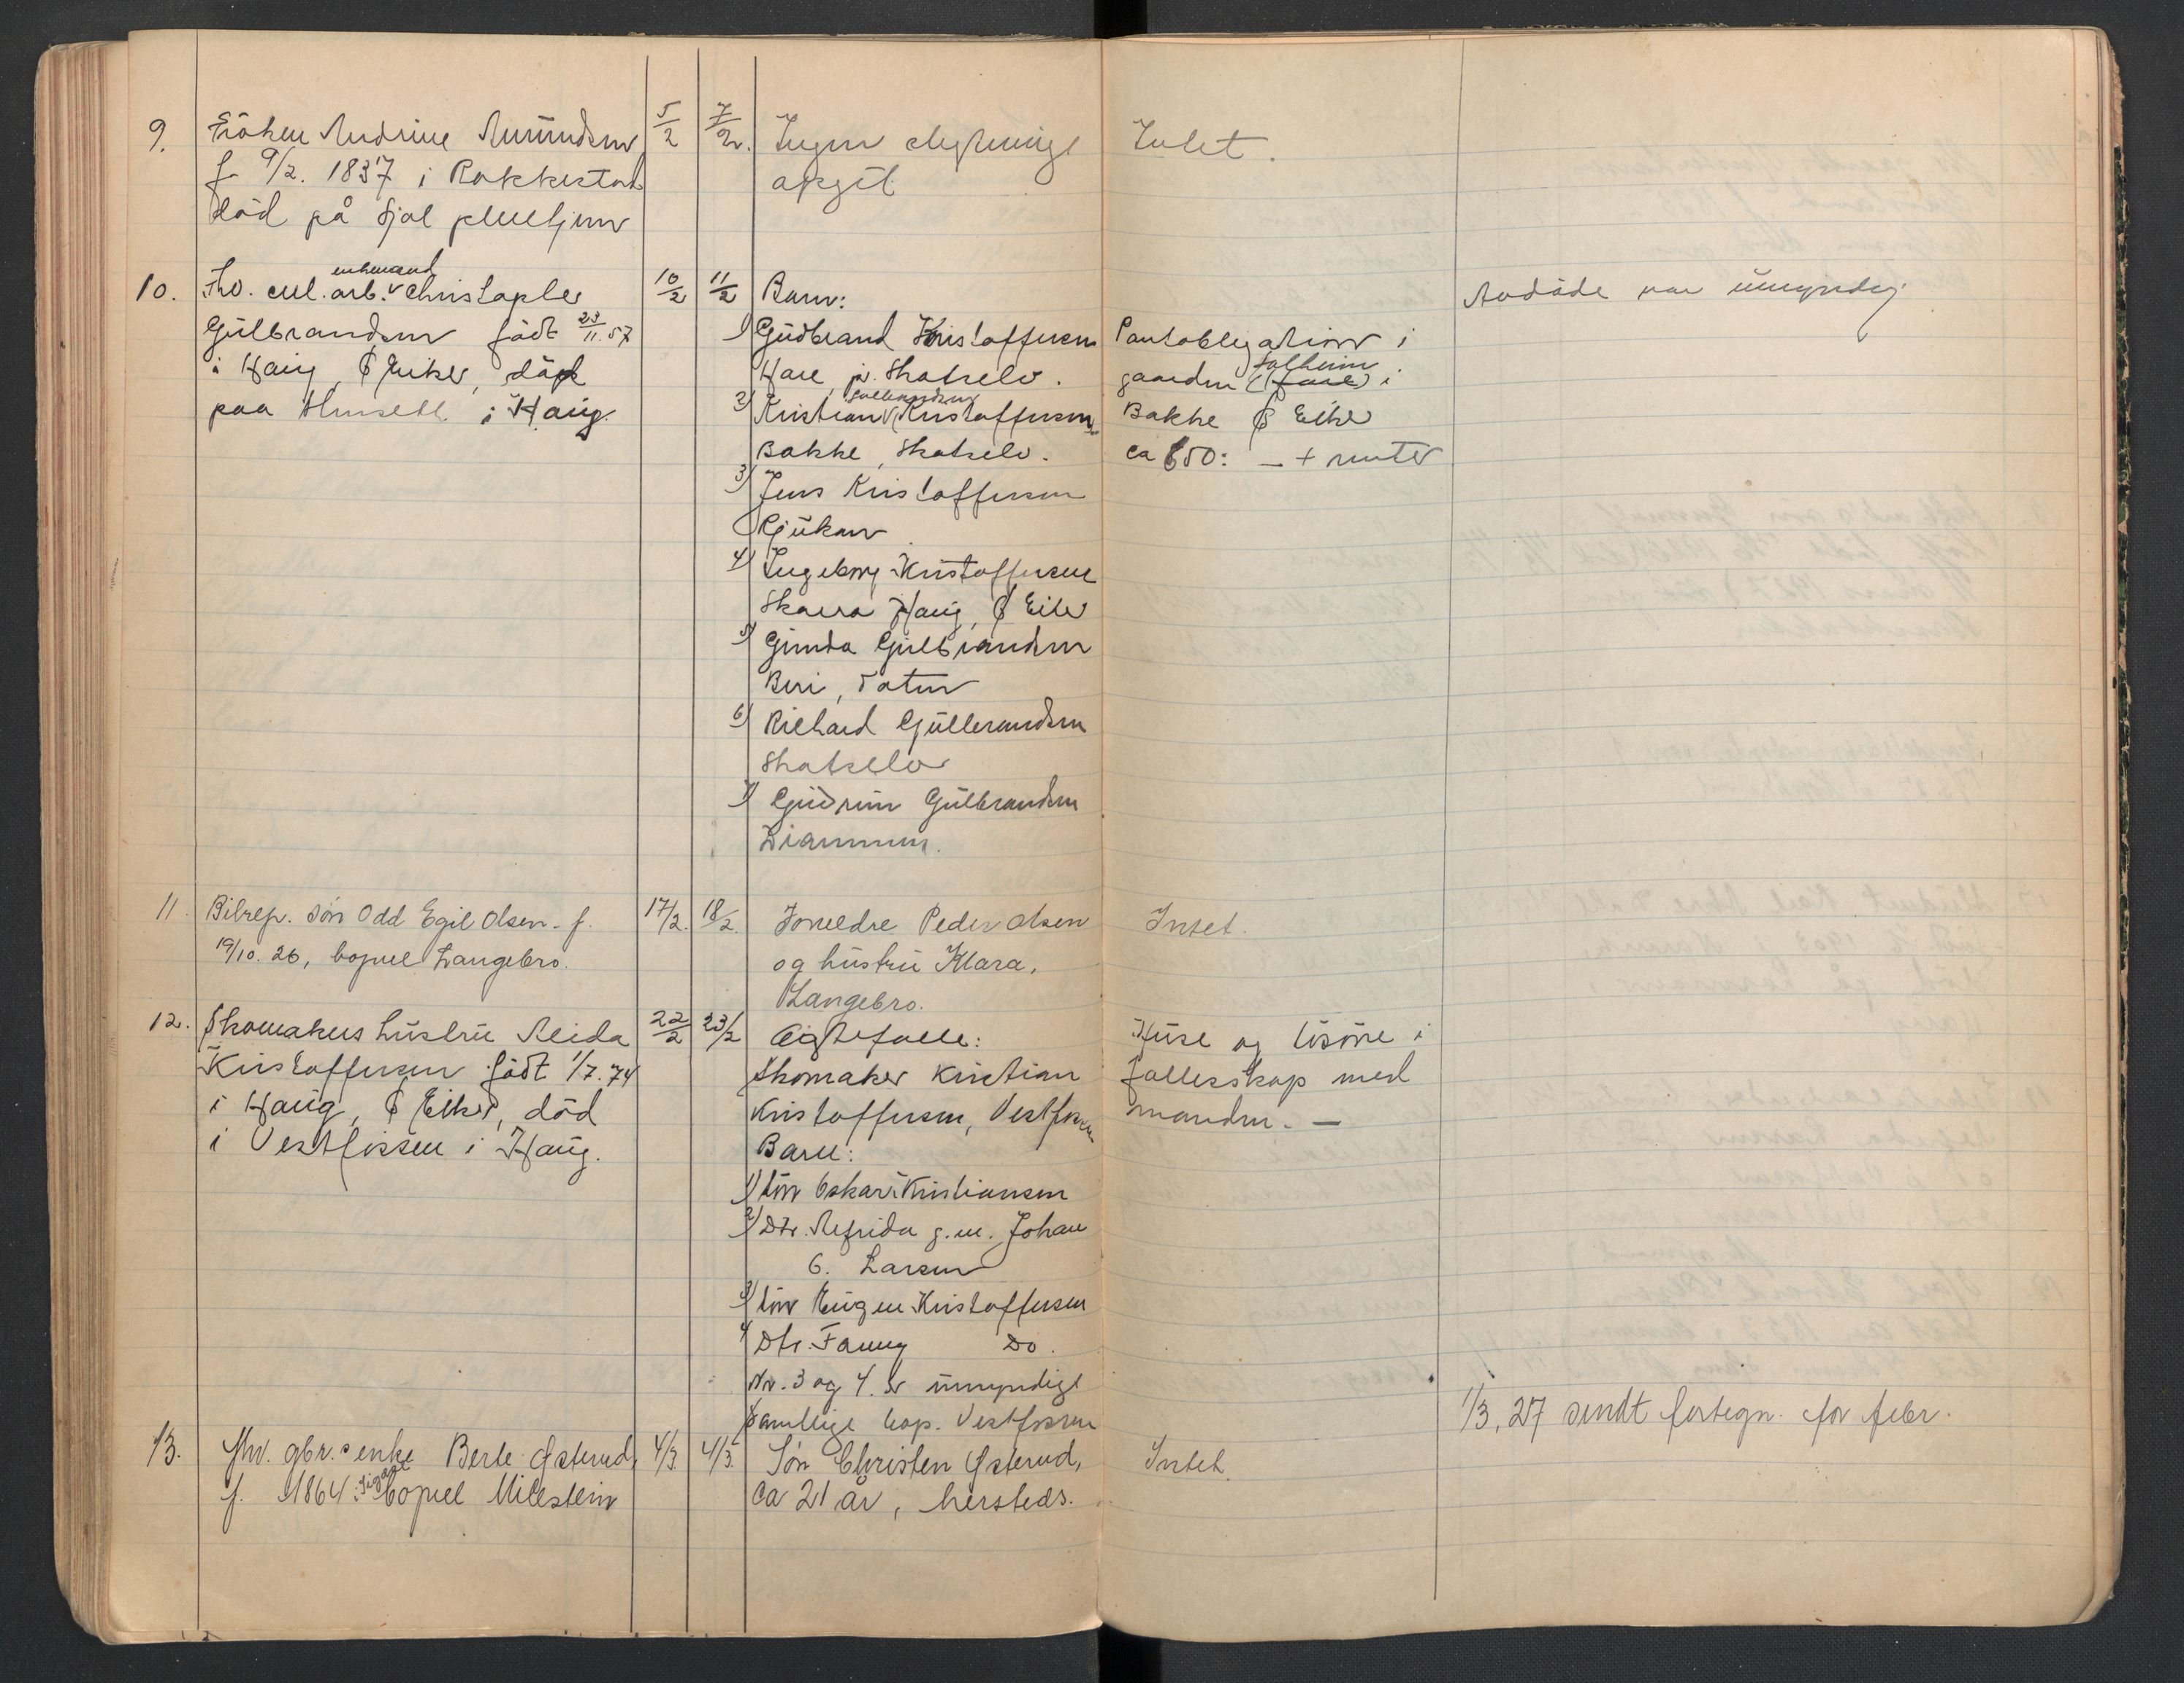 9. Fröken Andrine Amundsen 5/2 7/2. Ingen slegtninge Intet.
f. 9/2. 1837 i Rakkestad opgit
död på Fjøl pleiehjem
enkemand
10. Fhv. cell. arb. v Christopher 10/2 11/2 Barn: Avdøde var umyndig
Gulbrandsen født 23/11.57 1) Gudbrand Kristoffersen Pantobligation i
Solheim
i Haug, Ø Eiker, død Hare pr. Skotselv. gaarden (Hare) i
Gulbrandsen
paa i Haug. 2) Kristian v (Kristoffersen) Bakke Ø Eiker
Bakke, Skotselv. ca 650: — + renter
3) Jens Kristoffersen
Rjukan
4) Ingeborg Kristoffersen
Skaara Haug, Ø Eiker
5) Gunda Gulbrandsen
Beri, Toten
6) Richard Gulbrandsen
Skotselv
7) Gudrun Gulbrandsen
Drammen.
11. Bilrep. søn Odd Egil Olsen - f. 17/2. 18/2. Foreldre Peder Olsen Intet.
19/10. 26, bopæl Langebro. og hustru Klara,
Langebro.
12. Skomakers hustru Alida 22/2 23/2 Ægtefælle: Huse og løsøre i
Kristoffersen født 1/7.74 Skomaker Kristian fællesskap med
i Haug, Ø Eiker, död Kristoffersen, Vestfossen manden. —
i Vestfossen i Haug. Barn:
1) Søn Oskar Kristiansen
2) Dtr. Alfrida g.m. Johan
G. Larsen
3) Søn Eugen Kristoffersen
4) Dtr. Fanny Do.
Nr. 3 og 4. er umyndige
samtlige bop. Vestfossen 1/3. 27 sendt fortegn. for febr.
13. Fhv. gbr.s enke Berte Østerud, 4/3. 4/3. Søn Christen Østerud, Intet.
Sigdal
f. 1864 bopæl Milestein ca 21 år, hersteds.